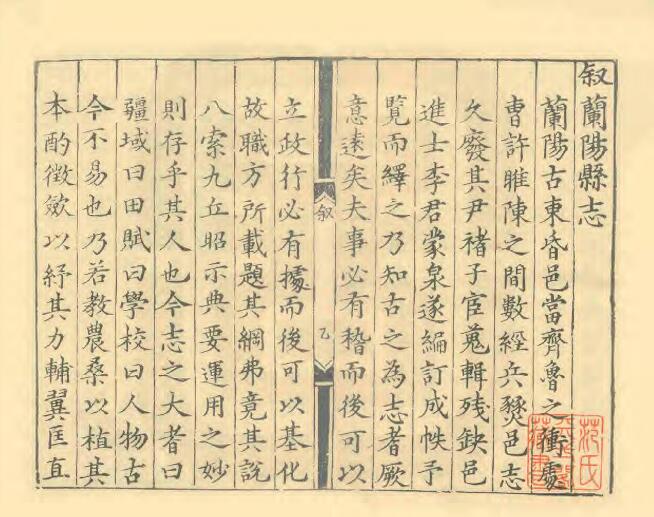 叙蘭陽縣志
蘭陽古東昏邑當齊魯之衝處
曹許睢陳之間數經兵燹邑志
久廢其尹褚子宦蒐輯残缺邑
進士李君蒙泉遂編訂成帙予
覧而繹之乃知古之為志者厥
意遠矣夫事必有稽而後可以
叙
乙
立政行必有據而後可以基化
故職方所載題其綱弗竟其説
八索九丘昭示典要運用之妙
則存乎其人也今志之大者曰
疆域曰田賦曰學校曰人物古
今不易也乃若教農桑以植其
本酌徵斂以紓其力輔翼匡直
范氏
天一閣
藏書